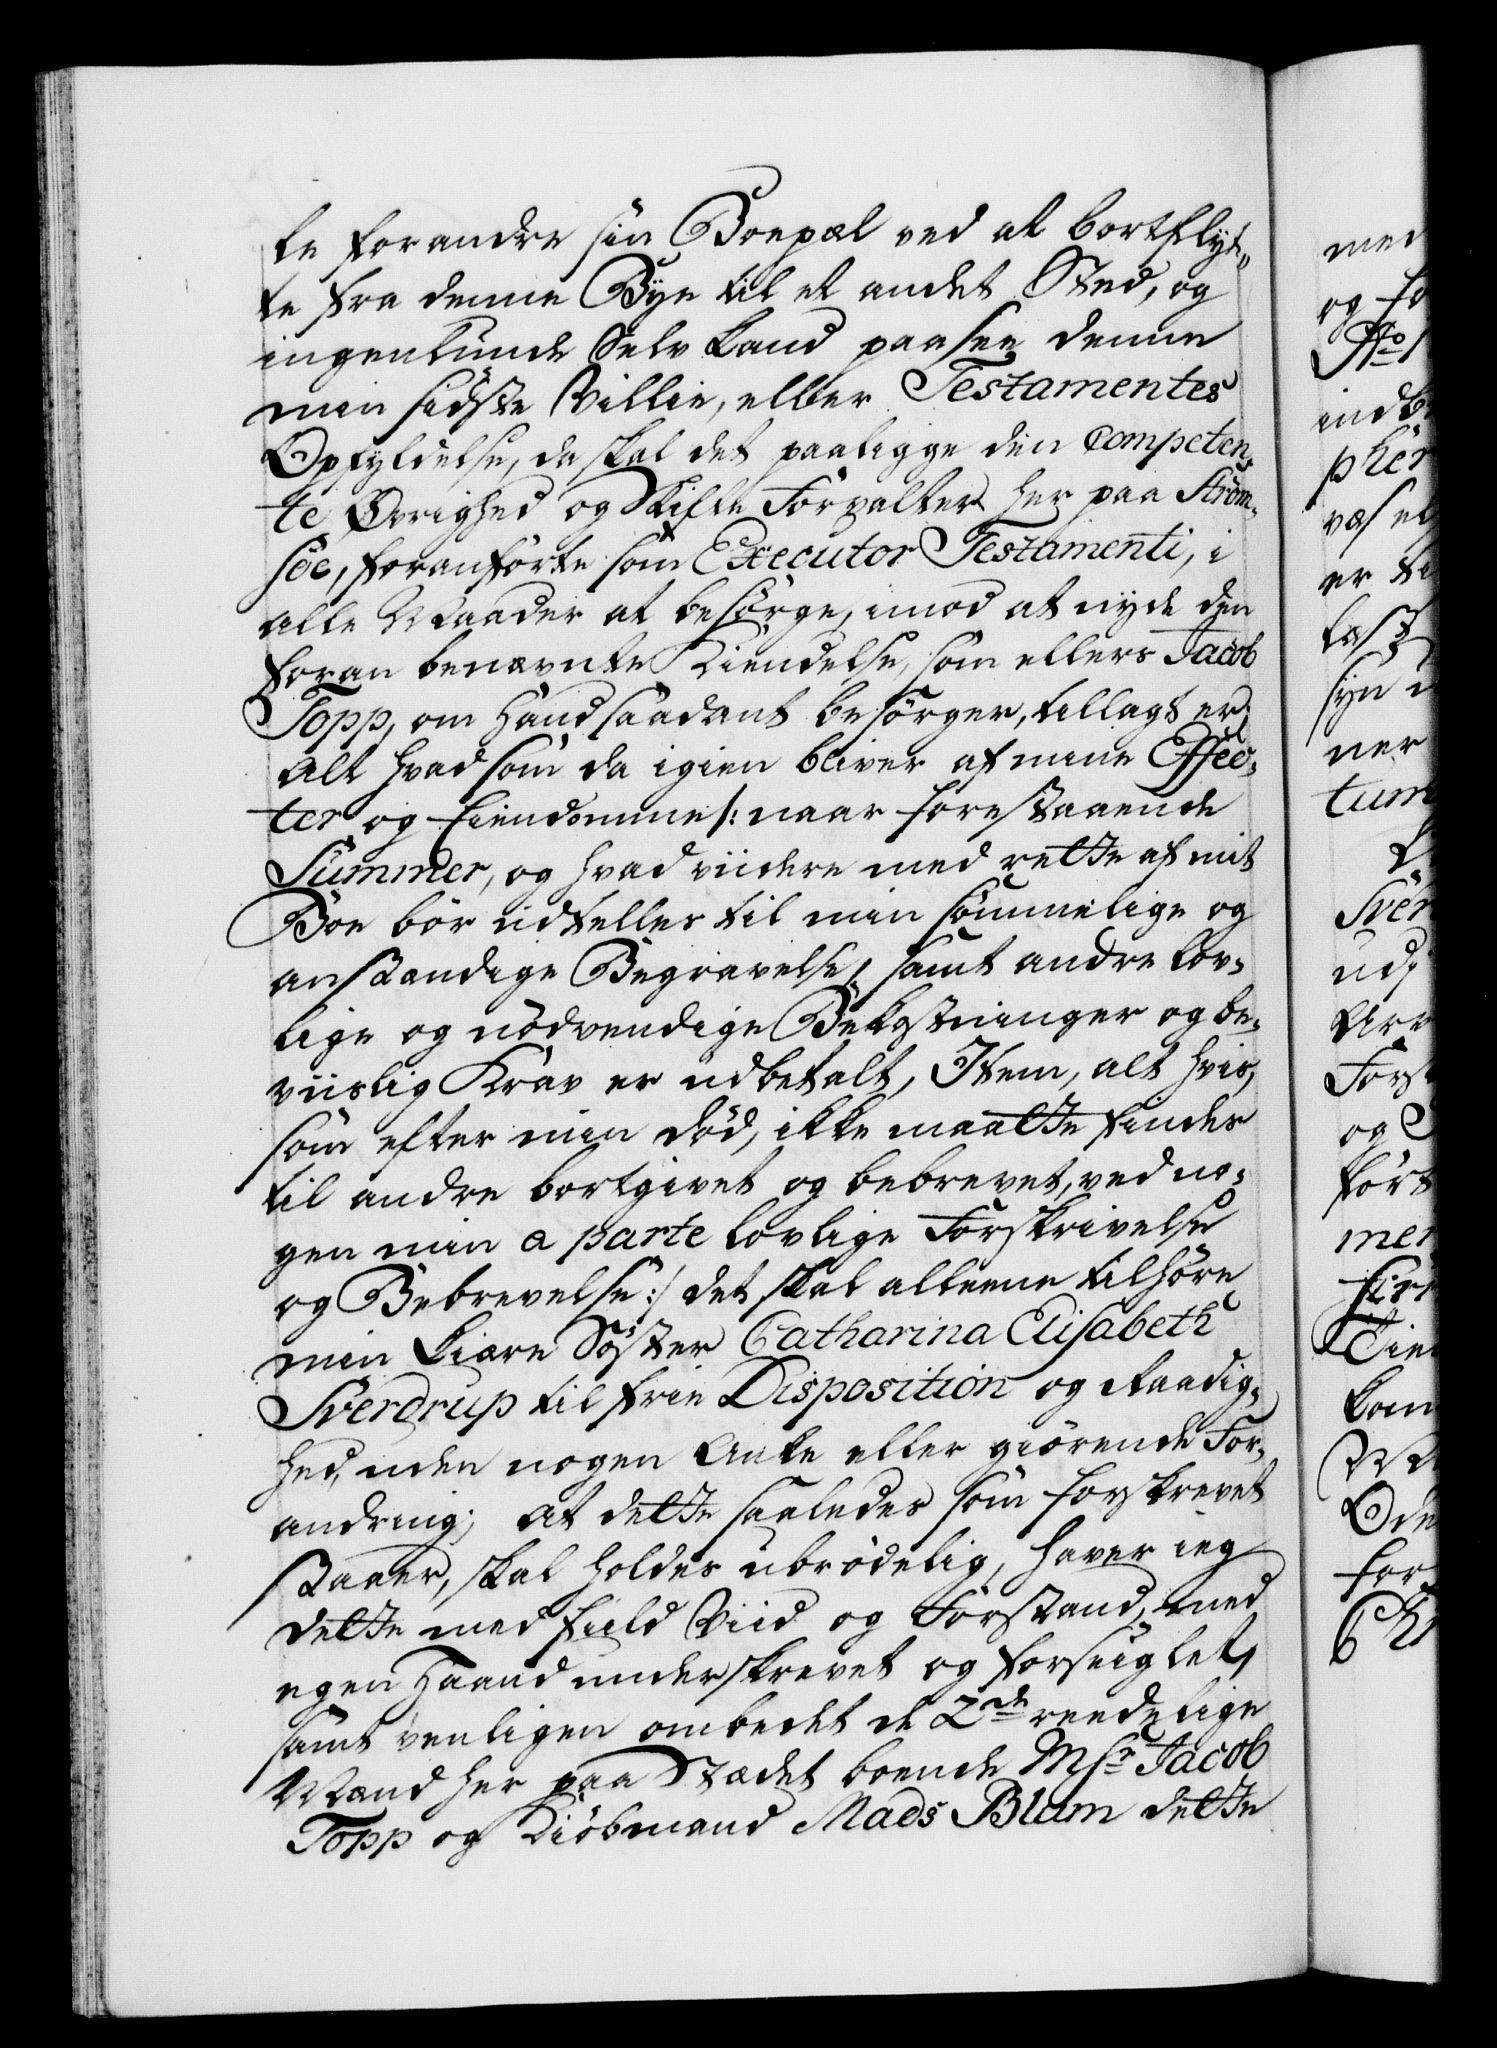 te forandre sin Boepæl ved at bortflyt„
te fra denne Bÿe til et andet Sted, og
ingenlunde Selv kand paasee denne
min sidste Villie, eller Testamentes
Opfyldelse, da skal det paaligge den Competen„
te Øvrighed og Skifte Forvalter her paa Ström„
söe, foranförte som Executor Testamenti, i
alle Maader at besörge, imod at nyde den
foran benævnte Kiendelse, som ellers Jacob
Topp, om hand saadant besörger, tillagt er.
Alt hvad som da igien bliver af mine Effec„
ter og Eiendomme /: naar forestaaende
Summer, og hvad viidere med rette af mit
Boe bör udtelles til min sömmelige og
anstændige Begravelse, samt andre lov„
lige og nödvendige Bekostninger og be„
viislig Krav er udbetalt, Item, alt hvis,
som efter min död, ikke maatte findes
til andre bortgivet og bebrevet, ved no„
gen min a parte lovlige Forskrivelse
og Bebrevelse :/ det skal alleene tilhöre
min kiære Söster Catharina Elisabeth
Sverdrup til frie Disposition og Raadig„
hed, uden nogen Anke eller giörende For„
andring; At dette saaledes som forskrevet
staaer, skal holdes ubrödelig, haver ieg
dette med fuld Viid og Forstand, med
egen Haand underskrevet og forseiglet,
samt venligen ombedet de 2de reedelige
Mænd her paa Stædet boende Msr Jacob
Topp og Kiöbmand Mads Blum dette